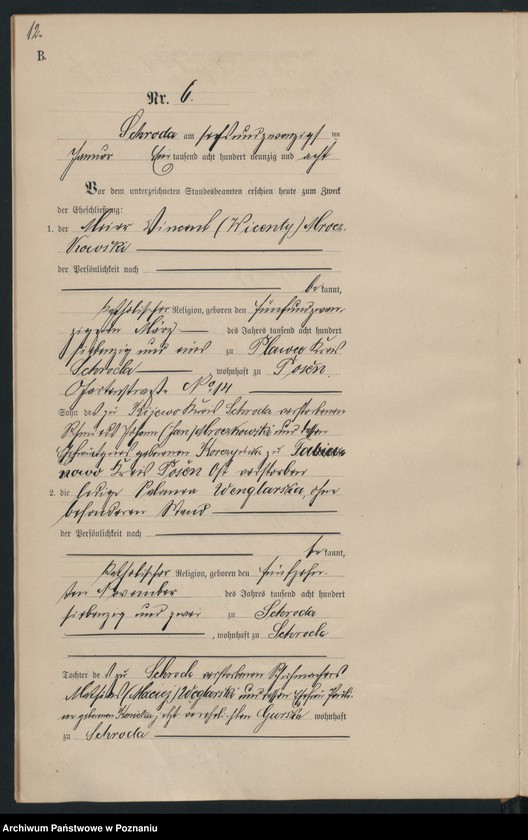 12.
B.
Nr. 6.
Schroda am sechsundzwanzigs ten
Januar Ein tausend acht hundert neunzig und acht
Vor dem unterzeichneten Standesbeamten erschien heute zum Zweck
der Eheschließung:
1. der Maurer Vincent (Wicenty) Mrocz-
kowski
der Persönlichkeit nach
be kannt,
katholischer Religion, geboren den fünfundzwan-
zigsten März des Jahres tausend acht hundert
siebenzig und eins zu Plawce Kreis
Schroda wohnhaft zu Posen
No 14
Sohn des zu Kijewo Kreis Schroda verstorbenen
Johann (Jan) Mroczkowski und dessen
geborenen zu
Kreis Posen Ost verstorben
2. die ledige Salomea Wenglarska, ohne
besonderen Stand
der Persönlichkeit nach
be kannt,
katholischer Religion, geboren den fünfzehn-
ten November des Jahres tausend acht hundert
siebenzig und zwei zu Schroda
, wohnhaft zu Schroda
Tochter des zu Schroda verstorbenen Schuhmachers
Mathias (Maciej) Węglarski und dessen Ehefrau
geborenen jetzt verehelichten Gurska wohnhaft
zu Schroda
Archiwum Państwowe w Poznaniu